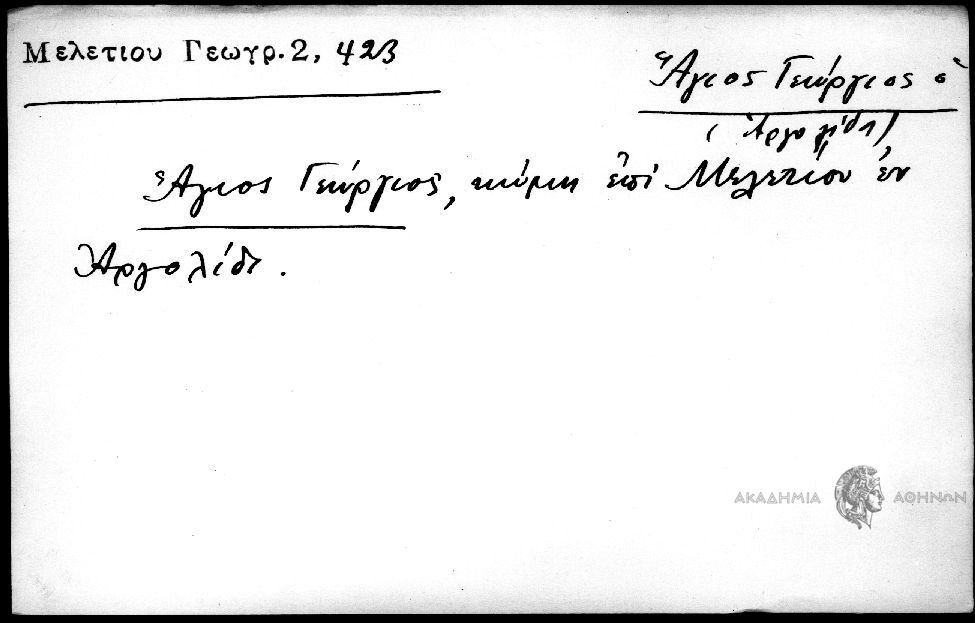 Μελετιου Γεωγρ. 2, 423
Ἅγιος Γεώργιος ὁ
(Ἀργολίδι)
Ἅγιος Γεώργιος, κώμη ἐπὶ Μελετίου ἐν
Ἀργολίδι.
ΑΚΑΔΗΜΙΑ ΑΘΗΝΩΝ